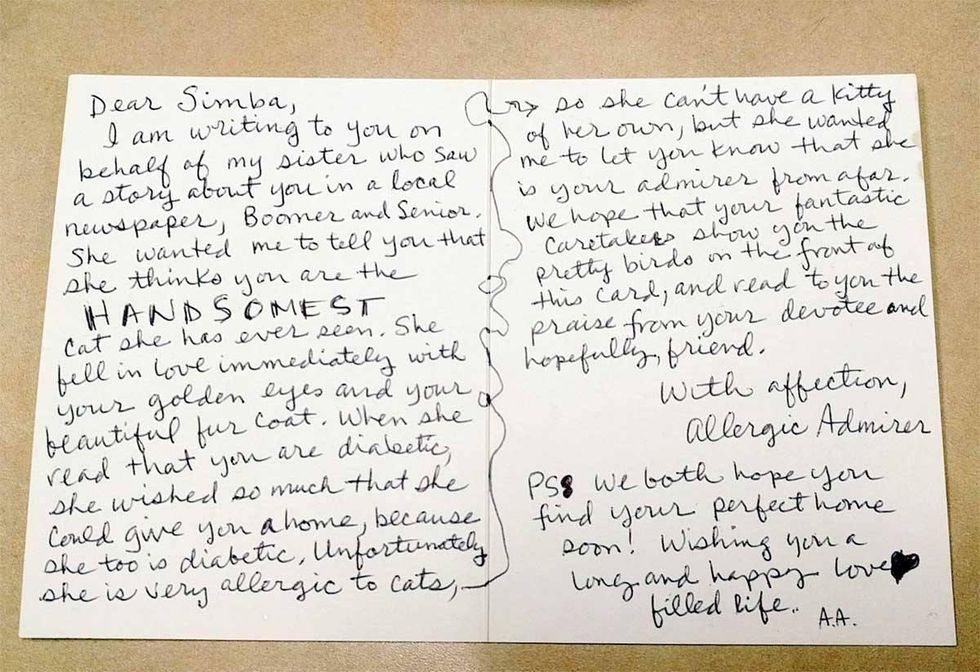 Dear Simba,
I am writing to you on
behalf of my sister who saw
a story about you in a local
newspaper, Boomer and Senior.
She wanted me to tell you that
she thinks you are the
HANDSOMEST
cat she has ever seen. She
fell in love immediately with
your golden eyes and your
beautiful fur coat. When she
read that you are diabetic,
she wished so much that she
could give you a home, because
she too is diabetic. Unfortunately
she is very allergic to cats,
so she can't have a kitty
of her own, but she wanted
me to let you know that she
is your admirer from afar.
We hope that your fantastic
caretakers show you the
pretty birds on the front of
this card, and read to you the
praise from your devotee and
hopefully, friend.
With affection,
Allergic Admirer
PS: We both hope you
find your perfect home
soon! Wishing you a
long and happy love
filled life.
A.A.